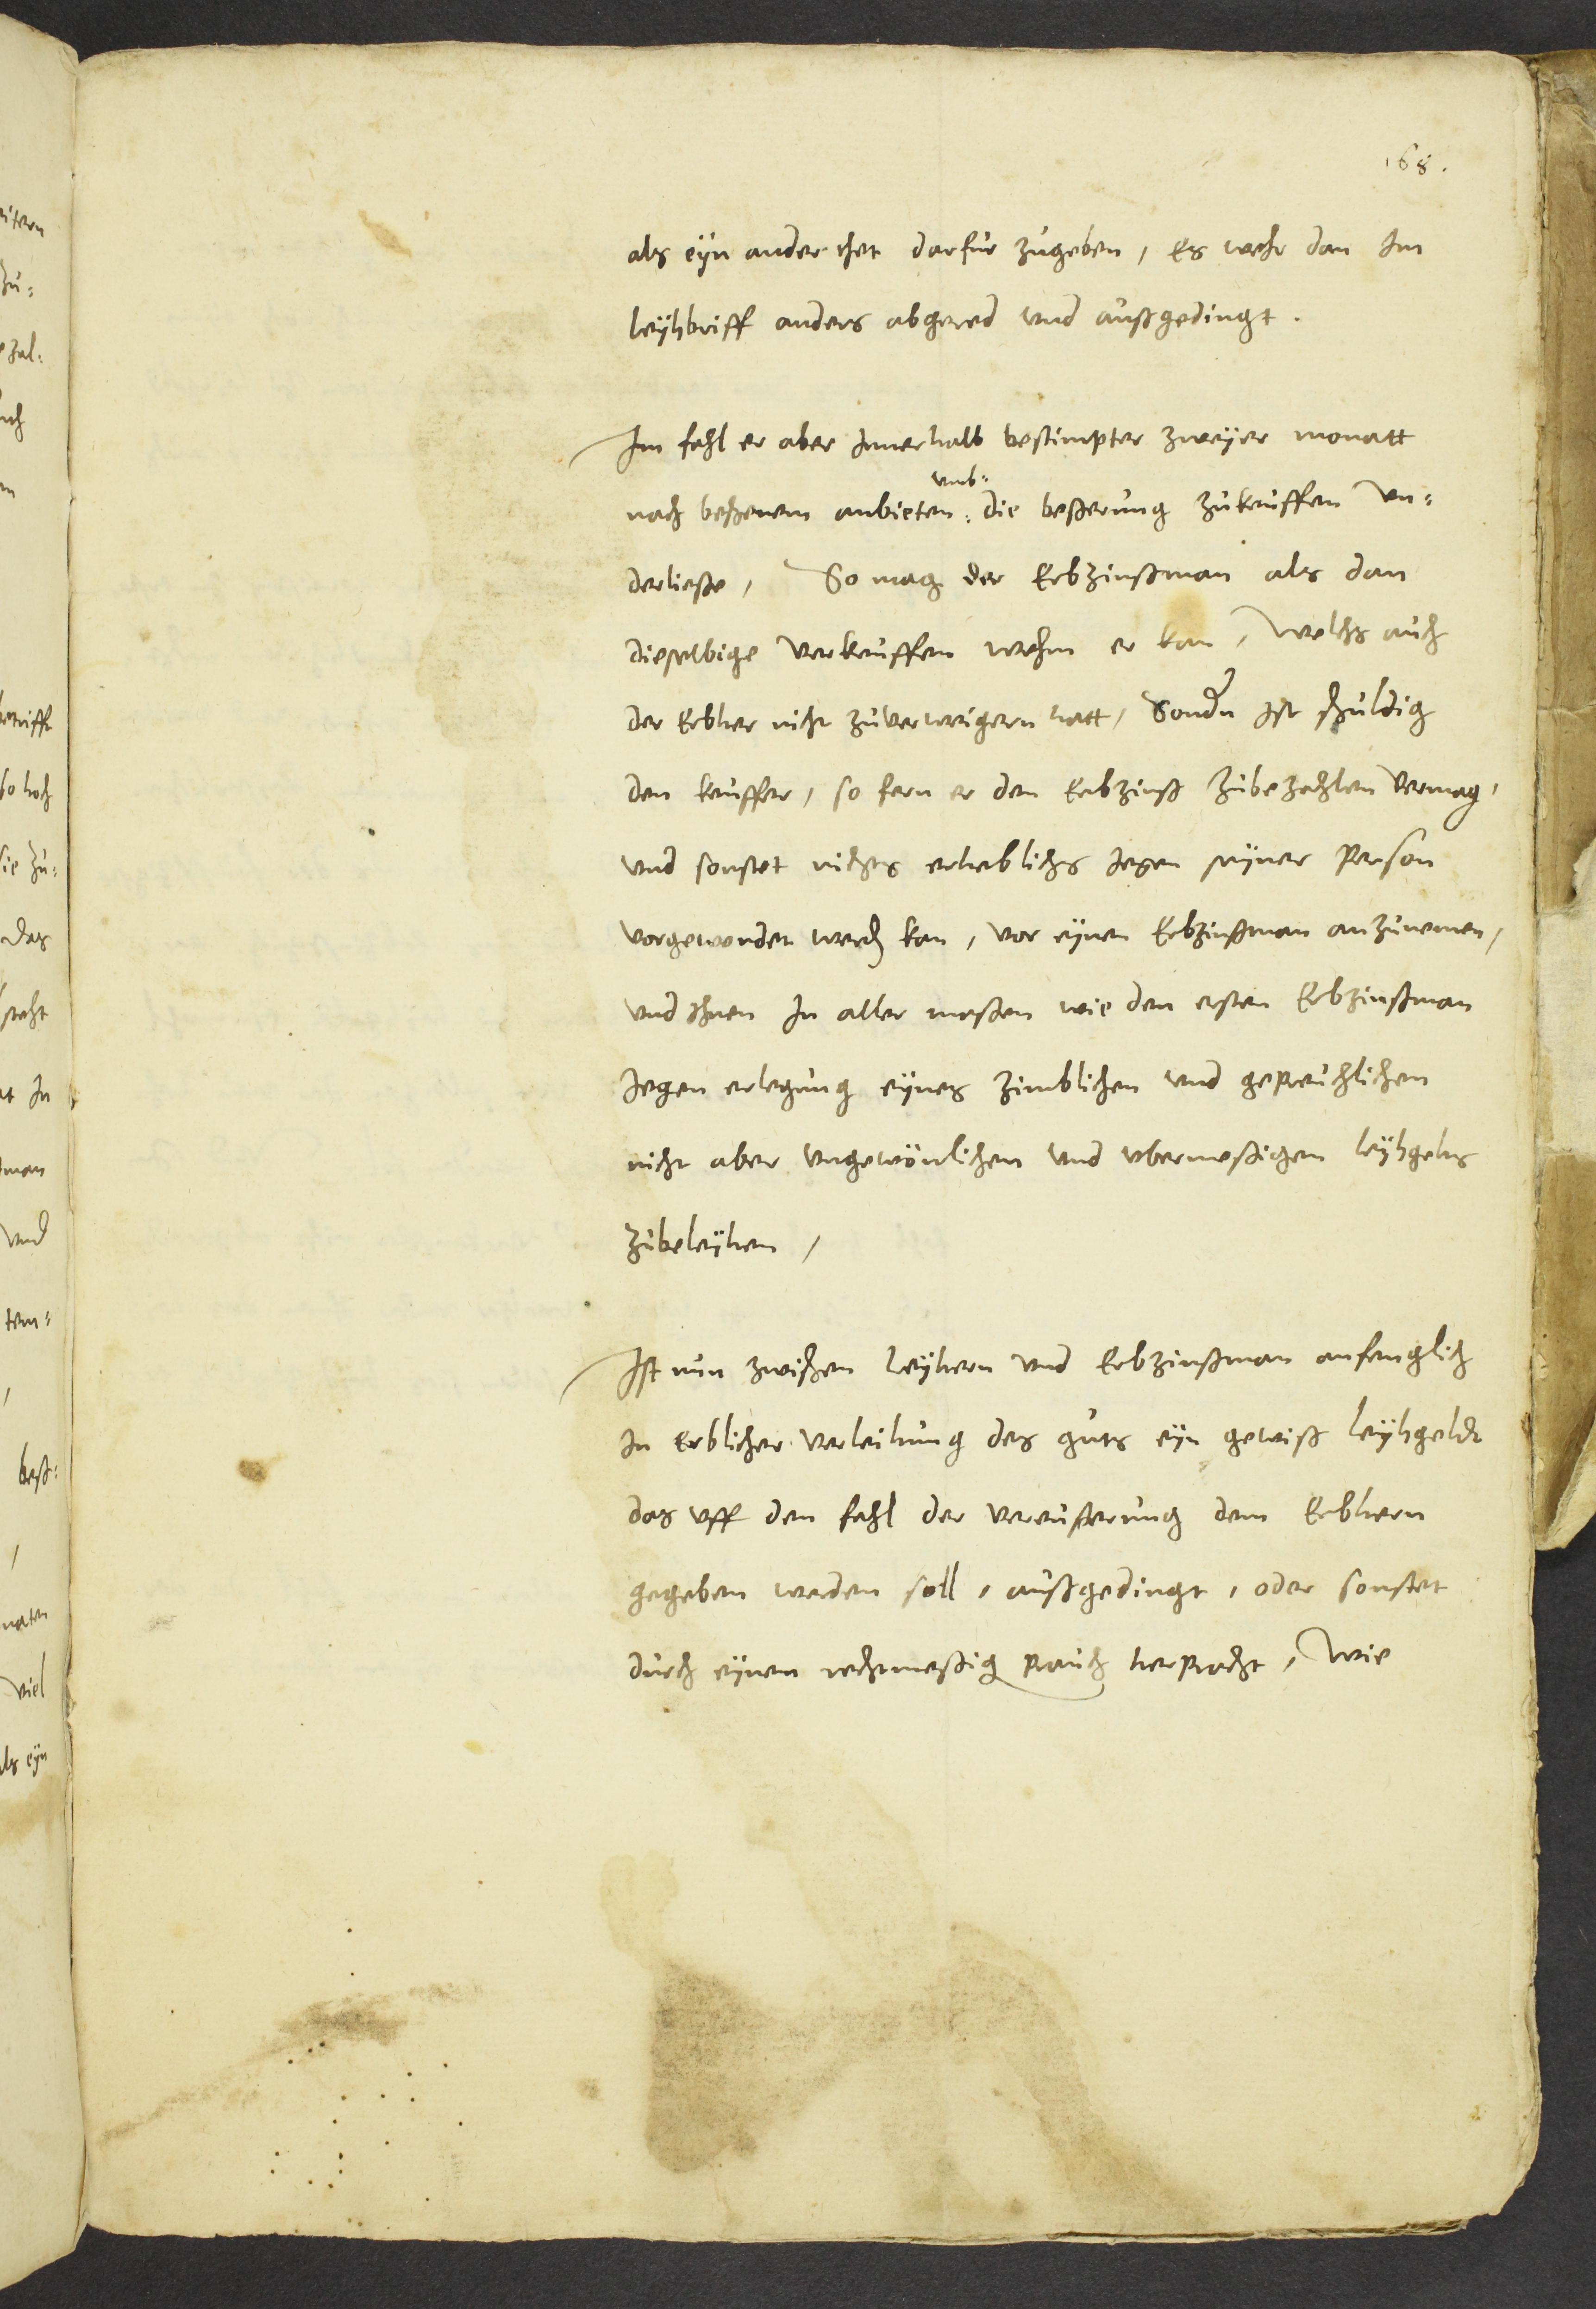 168.
als eyn ander thet darfur zugeben, Es wehr dan Im
leyhbriff anders abgered vnd außgedingt.
Im fahl er aber Innerhalb bestimpter zweyer monatt
vmb=
nach beschenem anbieten: die beßerung zukeuffen vn=
derließe, So mag der Erbzinßman als dan
dieselbige verkeuffen wehm er kan, Welchs auch
der Erbher nicht zuverweigern hatt, Sondern Ist schuldig
den keuffer, so fern er den Erbzinß zubezahlen vermag,
vnd sonstet nichts erheblichs Jegen seyner person
vorgewendet werden kan, vor eynen Erbzinßman anzunemen,
vnd Ihnen In aller maßen wie den ersten Erbzinßman
Jegen erlegung eynes zimblichen vnd gepreuchlichen
nicht aber vngewönlichen vnd vbermeßigen leyhgelts
zubeleyhen,
Ist nun zwischen Leyhern vnd Erbzinßman anfenglich
In Erblicher verleihung des guts eyn gewiß leyhgeldt
das vff den fahl der vereußerung dem Erbhern
gegeben werden soll, außgedingt, oder sonstet
durch eynen rechtmeßig prauch herpracht, Wie
itern
zu=
zal=
betrifft
so hoch
sie zu=
das
steht
In
man
vnd
ten=
beß=
viel
als eyn